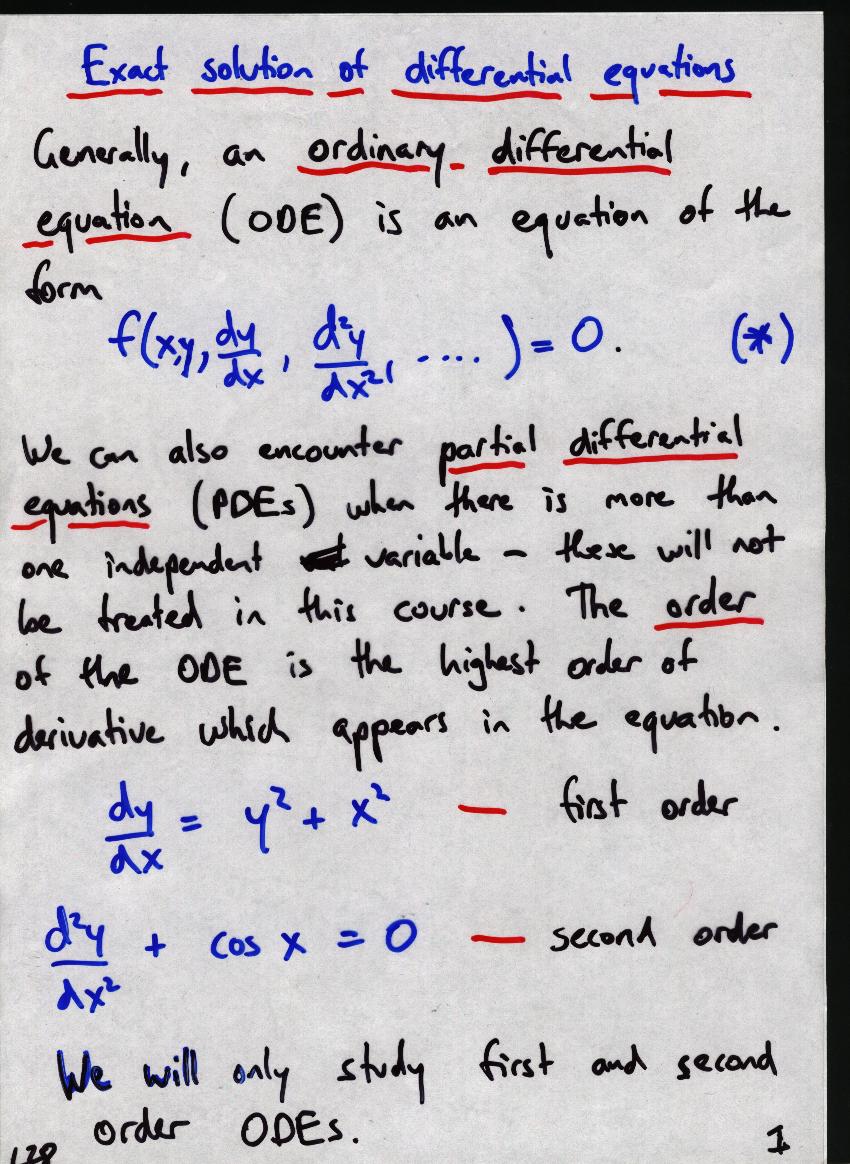 Exact solution of differential equations
Generally, an ordinary differential
equation (ODE) is an equation of the
form
f(x,y, dy/dx, d²y/dx², ....) = 0. (*)
We can also encounter partial differential
equations (PDEs) when there is more than
one independent variable – these will not
be treated in this course. The order
of the ODE is the highest order of
derivative which appears in the equation.
dy/dx = y² + x² — first order
d²y/dx² + cos x = 0 — second order
We will only study first and second
order ODEs.
128 1